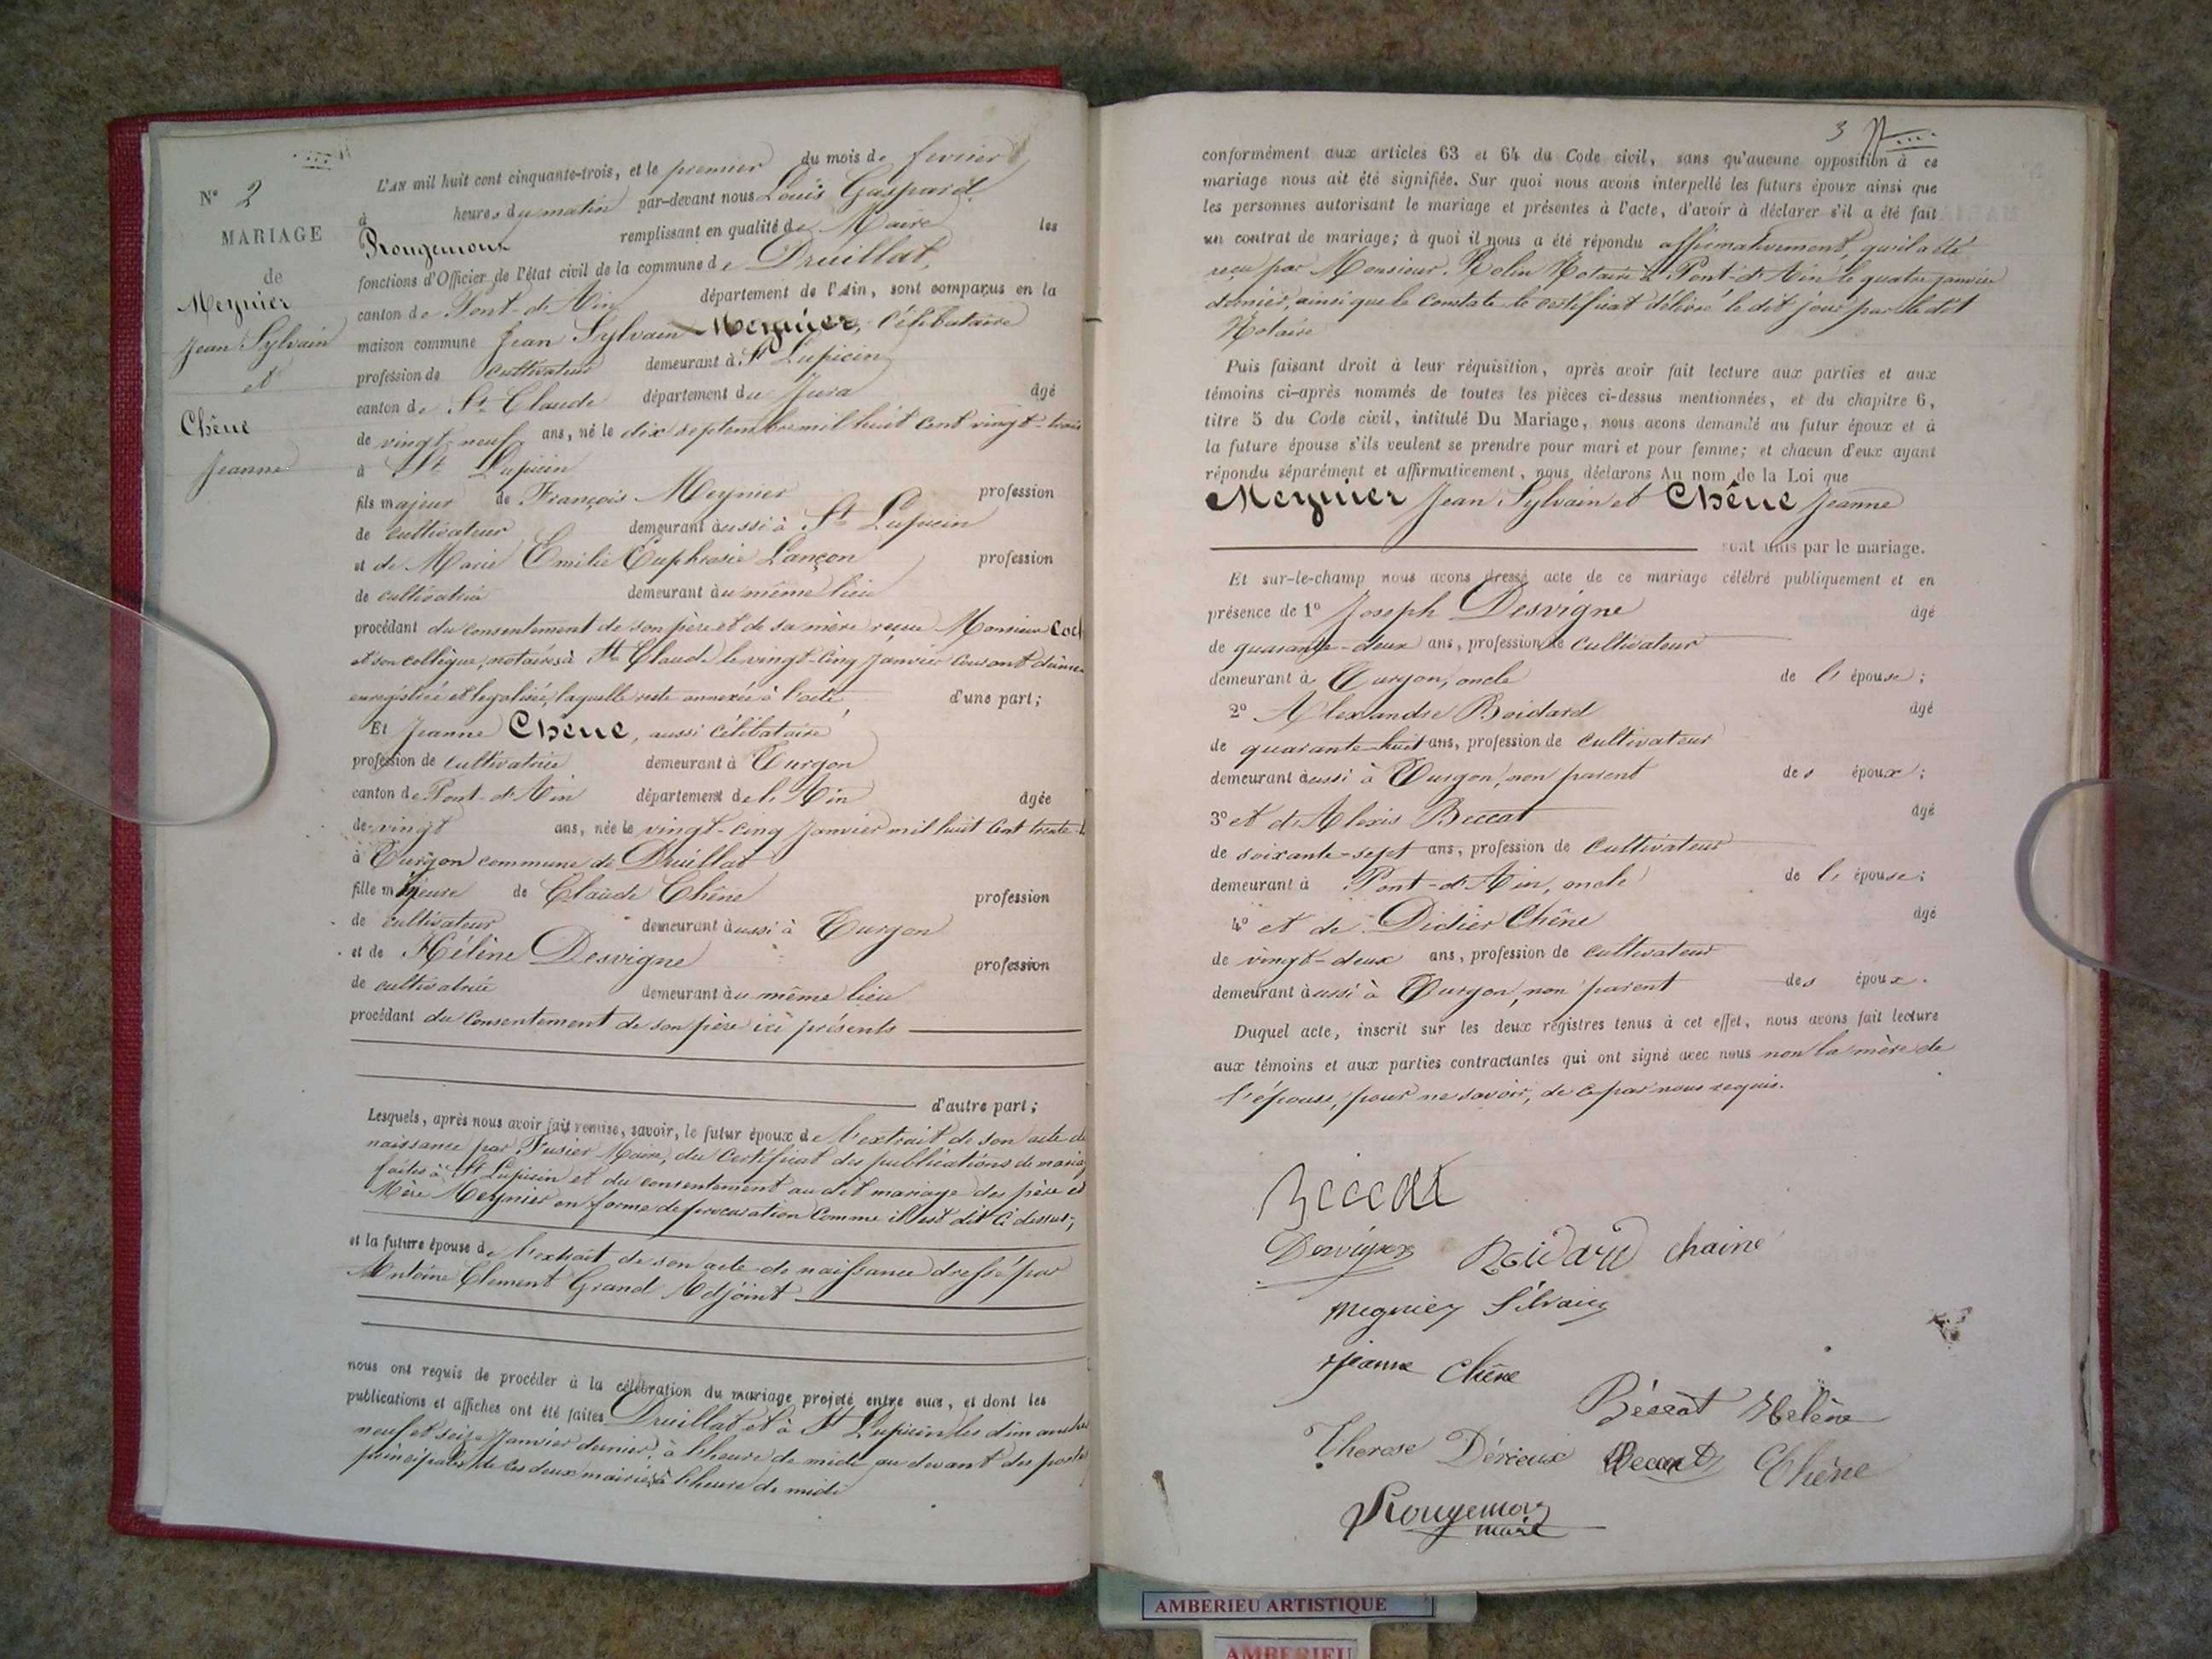 N° 2
MARIAGE
de
Meynier
Jean Sylvain
et
Chêne
Jeanne
L'AN mil huit cent cinquante-trois, et le premier du mois de fevrier
à heures du matin par-devant nous Louis Gaspard
Rougemont remplissant en qualité de Maire les
fonctions d'Officier de l'état civil de la commune de Druillat,
canton de Pont-d'Ain département de l'Ain, sont comparus en la
maison commune Jean Sylvain Meynier, Célibataire
profession de cultivateur demeurant à St Lupicin
canton de St Claude département du Jura âgé
de vingt-neuf ans, né le dix septembre mil huit cent vingt-trois
à St Lupicin
fils majeur de François Meynier profession
de cultivateur demeurant aussi à St Lupicin
et de Marie Emilie Euphrasie Lançon profession
de cultivatrice demeurant au même lieu
procédant du consentement de son père et de sa mère reçue Monsieur
et son collègue, notaires à St Claude le vingt-cinq Janvier courant dûme
enregistrée et légalisée, laquelle reste annexée à l'acte, d'une part;
Et Jeanne Chêne, aussi Célibataire
profession de cultivatrice demeurant à Turgon
canton de Pont-d'Ain département de l'Ain âgée
de vingt ans, née le vingt-cinq Janvier mil huit Cent trente
à Turgon commune de Druillat
fille mineure de Claude Chêne profession
de cultivateur demeurant aussi à Turgon
et de Hélène Desvigne profession
de cultivatrice demeurant au même lieu
procédant du Consentement de son père ici présents
d'autre part;
Lesquels, après nous avoir fait remise, savoir, le futur époux de l'extrait de son acte de
naissance par Fusier Maire, du Certificat des publications de mariag
faites à St Lupicin et du consentement au dit mariage des père et
Mère Meynier en forme de procuration comme il est dit Ci dessus;
et la future épouse de l'extrait de son acte de naissance dressé par
Antoine Clement Grand Adjoint
nous ont requis de procéder à la célébration du mariage projeté entre eux, et dont les
publications et affiches ont été faites Druillat et à St Lupicin les dimanches
neuf et seize Janvier dernier, à l'heure de midi au devant des portes
principales de ces deux mairies à l'heure de midi
3
conformément aux articles 63 et 64 du Code civil, sans qu'aucune opposition à ce
mariage nous ait été signifiée. Sur quoi nous avons interpellé les futurs époux ainsi que
les personnes autorisant le mariage et présentes à l'acte, d'avoir à déclarer s'il a été fait
un contrat de mariage; à quoi il nous a été répondu affirmativement, qu'il a été
reçu par Monsieur Rolin Notaire à Pont-d'Ain le quatre janvier
dernier, ainsi que le Constate le certificat délivré le dit jour par le dit
Notaire
Puis faisant droit à leur réquisition, après avoir fait lecture aux parties et aux
témoins ci-après nommés de toutes les pièces ci-dessus mentionnées, et du chapitre 6,
titre 5 du Code civil, intitulé Du Mariage, nous avons demandé au futur époux et à
la future épouse s'ils veulent se prendre pour mari et pour femme; et chacun d'eux ayant
répondu séparément et affirmativement, nous déclarons Au nom de la Loi que
Meynier Jean Sylvain et Chêne Jeanne
sont unis par le mariage.
Et sur-le-champ nous avons dressé acte de ce mariage célébré publiquement et en
présence de 1° Joseph Desvigne âgé
de quarante-deux ans, profession de cultivateur
demeurant à Turgon, oncle de l'épouse;
2° Alexandre Boidard âgé
de quarante-huit ans, profession de cultivateur
demeurant aussi à Turgon, non parent des époux;
3° et d'Alexis Beccat âgé
de soixante-sept ans, profession de Cultivateur
demeurant à Pont-d'Ain, oncle de l'épouse;
4° et de Didier Chêne âgé
de vingt-deux ans, profession de cultivateur
demeurant aussi à Turgon, non parent des époux.
Duquel acte, inscrit sur les deux registres tenus à cet effet, nous avons fait lecture
aux témoins et aux parties contractantes qui ont signé avec nous non la mère de
l'épouse, pour ne savoir, de ce par nous requis.
Beccat
Desvignes Boidard chaine
meynier Silvain
Jeanne Chêne
Béccat Helène
Therese Dérieux Beccat Chêne
Rougemont
maire
AMBERIEU ARTISTIQUE
AMBERIEU